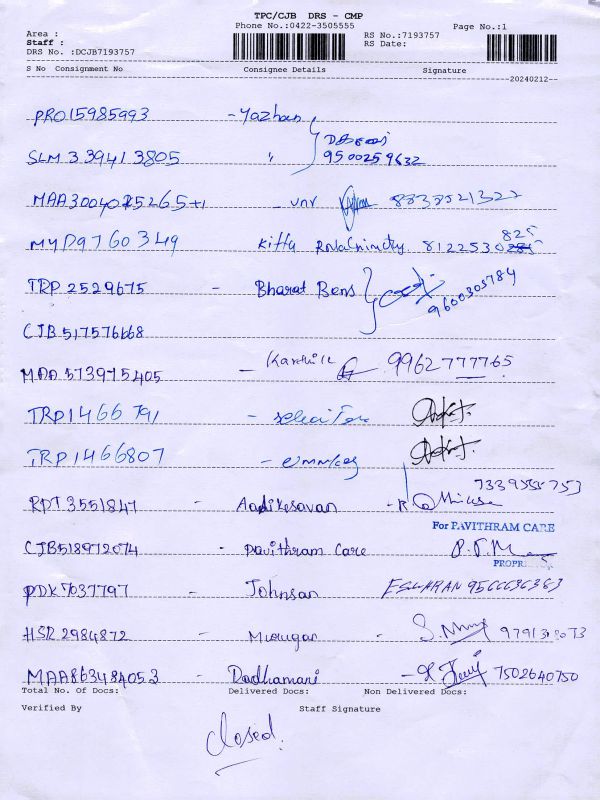 TPC/CJB DRS - CMP
Phone No.:0422-3505555
Page No.:1
Area :
Staff :
DRS No. :DCJB7193757
RS No.:7193757
RS Date:
S No Consignment No Consignee Details Signature
20240212
PRO15985993 - Yazhan
9500259632
SLM 339413805 "
MAA3004025265+1 - unr 8838521322
MYD9760349 Kitta 8122530 825
TRP 2529675 - Bharat Bens 9600303784
CJB 517576668
MAA 573975405 - Karthik 9962777765
TRP1466791 -
TRP1466807 -
RPT3551847 - Aadikesavan - R 7339555753
For PAVITHRAM CARE
CJB518972074 - Pavithram Care
PROPR
PDK7037797 - Johnsan ESWARAN 9566636363
HSR2984872 - Murugan - 9791308073
MAA863484053 - Dadhamani - 7502640750
Total No. Of Docs: Delivered Docs: Non Delivered Docs:
Verified By Staff Signature
closed.